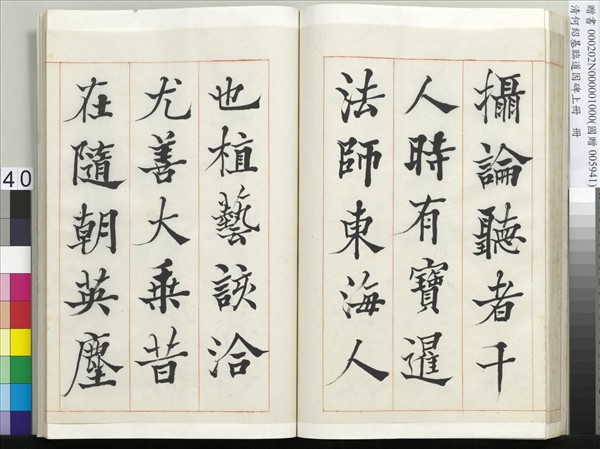 攝論聽者千
人時有寶暹
法師東海人
也植藝該洽
尤善大乘昔
在隨朝英塵
贈書 000202N000001000(國贈 005941)
清何紹基臨道因碑上冊 冊
40